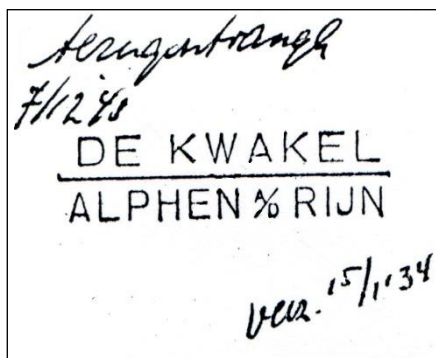 terugontvangh
7/12 48
DE KWAKEL
ALPHEN a/d RIJN
verz. 15/1'34